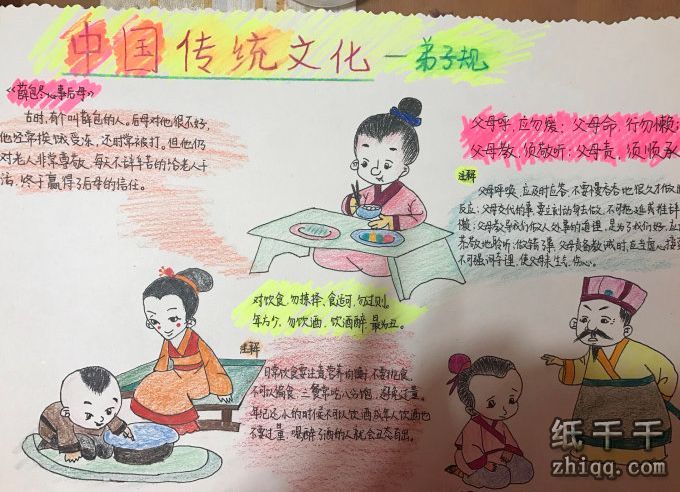 中国传统文化—弟子规
《薛包尽心事后母》
古时,有个叫薛包的人。后母对他很不好,
他经常挨饿受冻,还时常被打。但他仍
对老人非常尊敬,每天不辞辛苦的给老人干
活,终于赢得了后母的信任。
父母呼,应勿缓;父母命,行勿懒;
父母教,须敬听;父母责,须顺承
注释
父母呼唤,应及时应答,不要慢吞吞地很久才做
反应;父母交代的事,要立刻动身去做,不可拖延或推辞
父母教导我们做人处事的道理,是为了我们好,应
恭敬地聆听;做错了事,父母责备教诫时,应当虚心接受
不可强词夺理,使父母生气、伤心。
对饮食,勿拣择,食适可,勿过则。
年方少,勿饮酒,饮酒醉,最为丑。
注释
日常饮食要注意营养均衡,不要挑食,
不可以偏食,三餐常吃八分饱,避免过量。
年纪还小的时候不可以饮酒,成年人饮酒也
不要过量,喝醉了酒的人就会丑态百出。
纸千千
zhiqq.com